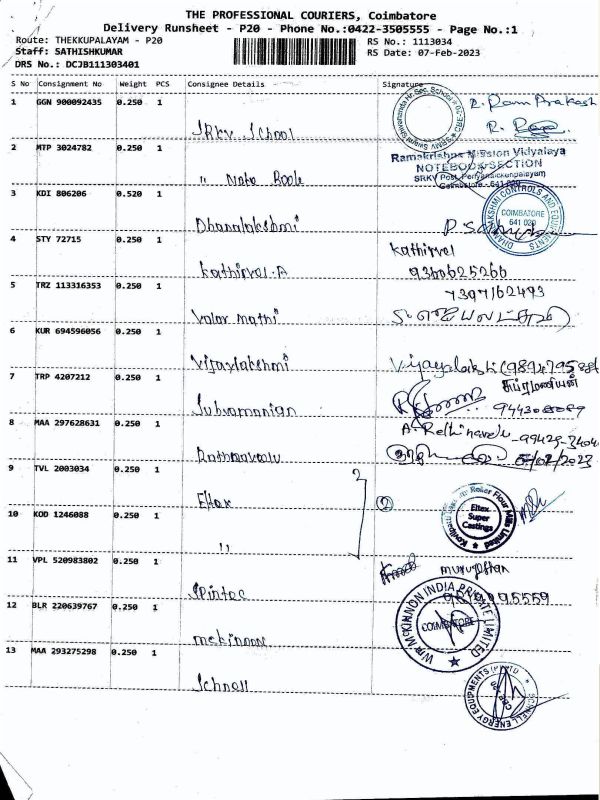 THE PROFESSIONAL COURIERS, Coimbatore
Delivery Runsheet - P20 - Phone No.:0422-3505555 - Page No.:1
Route: THEKKUPALAYAM - P20
Staff: SATHISHKUMAR
DRS No.: DCJB111303401
RS No.: 1113034
RS Date: 07-Feb-2023
S No Consignment No Weight PCS Consignee Details Signature
1 GGN 900092435 0.250 1
SRKV School
R. Ram Prakash
2 MTP 3024782 0.250 1
" Note Book
Ramakrishna Mission Vidyalaya
NOTEBOOK SECTION
SRKV Post, Periyanaickenpalayam
Coimbatore - 641 020
3 KDI 806206 0.520 1
Dhanalakshmi
DHANALAKSHMI CONTROLS AND EQUIPMENTS
COIMBATORE
641 020
4 STY 72715 0.250 1
Kathirvel.A
Kathirvel
9360625266
5 TRZ 113316353 0.250 1
Valar mathi
7397162493
6 KUR 694596056 0.250 1
Vijaylakshmi
7 TRP 4207212 0.250 1
Subramanian
சுப்ரமணியன்
8 MAA 297628631 0.250 1
A. Rethinavelu
9 TVL 2003034 0.250 1
Eltex
2
Eltex
Super
Castings
10 KOD 1246088 0.250 1
"
11 VPL 520983802 0.250 1
Spintec
12 BLR 220639767 0.250 1
mckinnon
INDIA PRIVATE LIMITED
COIMBATORE
13 MAA 293275298 0.250 1
Schnell
SCHNELL ENERGY EQUIPMENTS (P) LTD